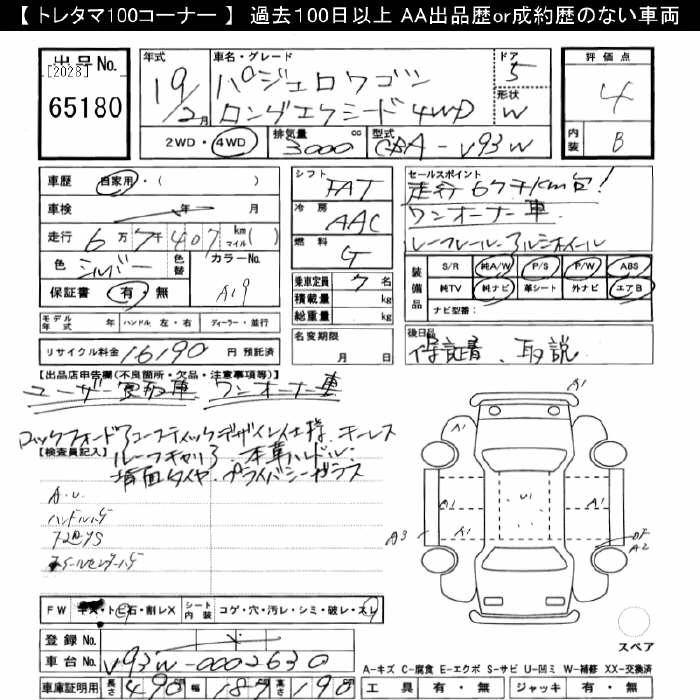 【 トレタマ100コーナー 】 過去100日以上 AA出品歴or成約歴のない車両
出品No. [2028] 65180
年式 19/2月
車名・グレード パジェロワゴン ロングエクシード4WD
ドア 5
形状 W
評価点 4
内装 B
2WD・4WD 排気量 3000 cc 型式 CBA-V93W
車歴 自家用・( )
車検 年 月
走行 6万7千407 km マイル( )
色 シルバー 色替 カラーNo. A19
保証書 有・無
モデル年式 年 ハンドル 左・右 ディーラー・並行
リサイクル料金 16190 円 預託済
シフト FAT
冷房 AAC
燃料 G
乗車定員 7 名
積載量 kg
総重量 kg
名変期限 月 日
セールスポイント
走行67千km台!
ワンオーナー車
ルーフレール・アルミホイール
装備品 S/R 純A/W P/S P/W ABS
純TV 純ナビ 革シート 外ナビ エアB
ナビ型番:
後日品
保証書、取説
【出品店申告欄(不良箇所・欠品・注意事項等)】
ユーザー買取車 ワンオーナー車
ロックフォードアコースティックデザイン仕様 キーレス
ルーフキャリア 本革ハンドル
背面タイヤ プライバシーガラス
【検査員記入】
A.U.
A1
A1
U1
A1
A3
A1
A2
A1
FW キズ・ト石・割レX シート内装 コゲ・穴・汚レ・シミ・破レ・スレ
登録No.
車台No. V93W-0002630
車庫証明用 長さ 490 幅 187 高さ 190
スペア
A-キズ C-腐食 E-エクボ S-サビ U-凹ミ W-補修 XX-交換済
工具 有・無 ジャッキ 有・無